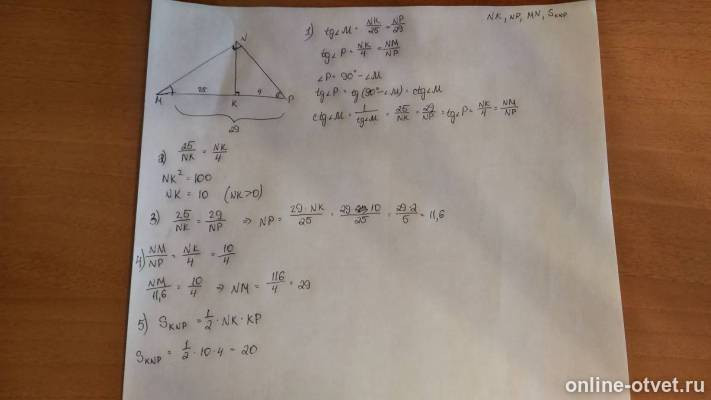 NK, NP, MN, S_KNP
N
M 25 K 4 P
29
1) tg∠M = NK/25 = NP/29
tg∠P = NK/4 = NM/NP
∠P = 90° - ∠M
tg∠P = tg(90° - ∠M) = ctg∠M
ctg∠M = 1/tg∠M = 25/NK = 29/NP = tg∠P = NK/4 = NM/NP
2) 25/NK = NK/4
NK² = 100
NK = 10 (NK > 0)
3) 25/NK = 29/NP ⇒ NP = 29·NK/25 = 29·10/25 = 29·2/5 = 11,6
4) NM/NP = NK/4 = 10/4
NM/11,6 = 10/4 ⇒ NM = 116/4 = 29
5) S_KNP = 1/2 · NK · KP
S_KNP = 1/2 · 10 · 4 = 20
online-otvet.ru